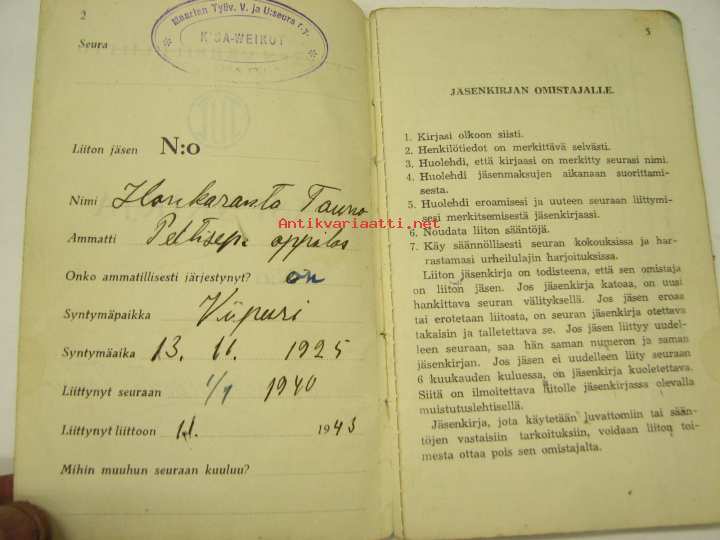 2
Seura
Maarian Työv. V. ja U:seura r.y.
KISA-WEIKOT
Liiton jäsen N:o
Nimi Honkaranta Tauno
Antikvariaatti.net
Ammatti Peltisep. oppilas
Onko ammatillisesti järjestynyt? on
Syntymäpaikka Viipuri
Syntymäaika 13. 11. 1925
Liittynyt seuraan 1/1 1940
Liittynyt liittoon 1.1. 1943
Mihin muuhun seuraan kuuluu?
3
JÄSENKIRJAN OMISTAJALLE.
1. Kirjasi olkoon siisti.
2. Henkilötiedot on merkittävä selvästi.
3. Huolehdi, että kirjaasi on merkitty seurasi nimi.
4. Huolehdi jäsenmaksujen aikanaan suorittami-
sesta.
5. Huolehdi eroamisesi ja uuteen seuraan liittymi-
sesi merkitsemisestä jäsenkirjaasi.
6. Noudata liiton sääntöjä.
7. Käy säännöllisesti seuran kokouksissa ja har-
rastamasi urheilulajin harjoituksissa.
Liiton jäsenkirja on todisteena, että sen omistaja
on liiton jäsen. Jos jäsenkirja katoaa, on uusi
hankittava seuran välityksellä. Jos jäsen eroaa
tai erotetaan liitosta, on seuran jäsenkirja otettava
takaisin ja talletettava se. Jos jäsen liittyy uudel-
leen seuraan, saa hän saman numeron ja saman
jäsenkirjan. Jos jäsen ei uudelleen liity seuraan
6 kuukauden kuluessa, on jäsenkirja kuoletettava.
Siitä on ilmoitettava liitolle jäsenkirjassa olevalla
muistutuslehtisellä.
Jäsenkirja, jota käytetään luvattomiin tai sään-
töjen vastaisiin tarkoituksiin, voidaan liiton toi-
mesta ottaa pois sen omistajalta.